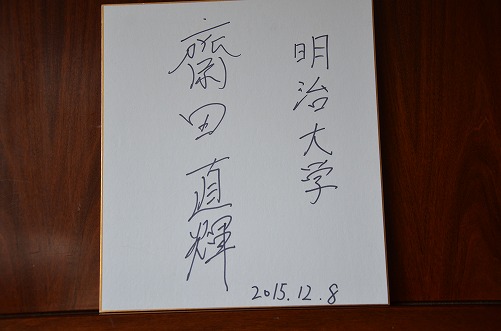 明治大学
齋田直輝
2015.12.8